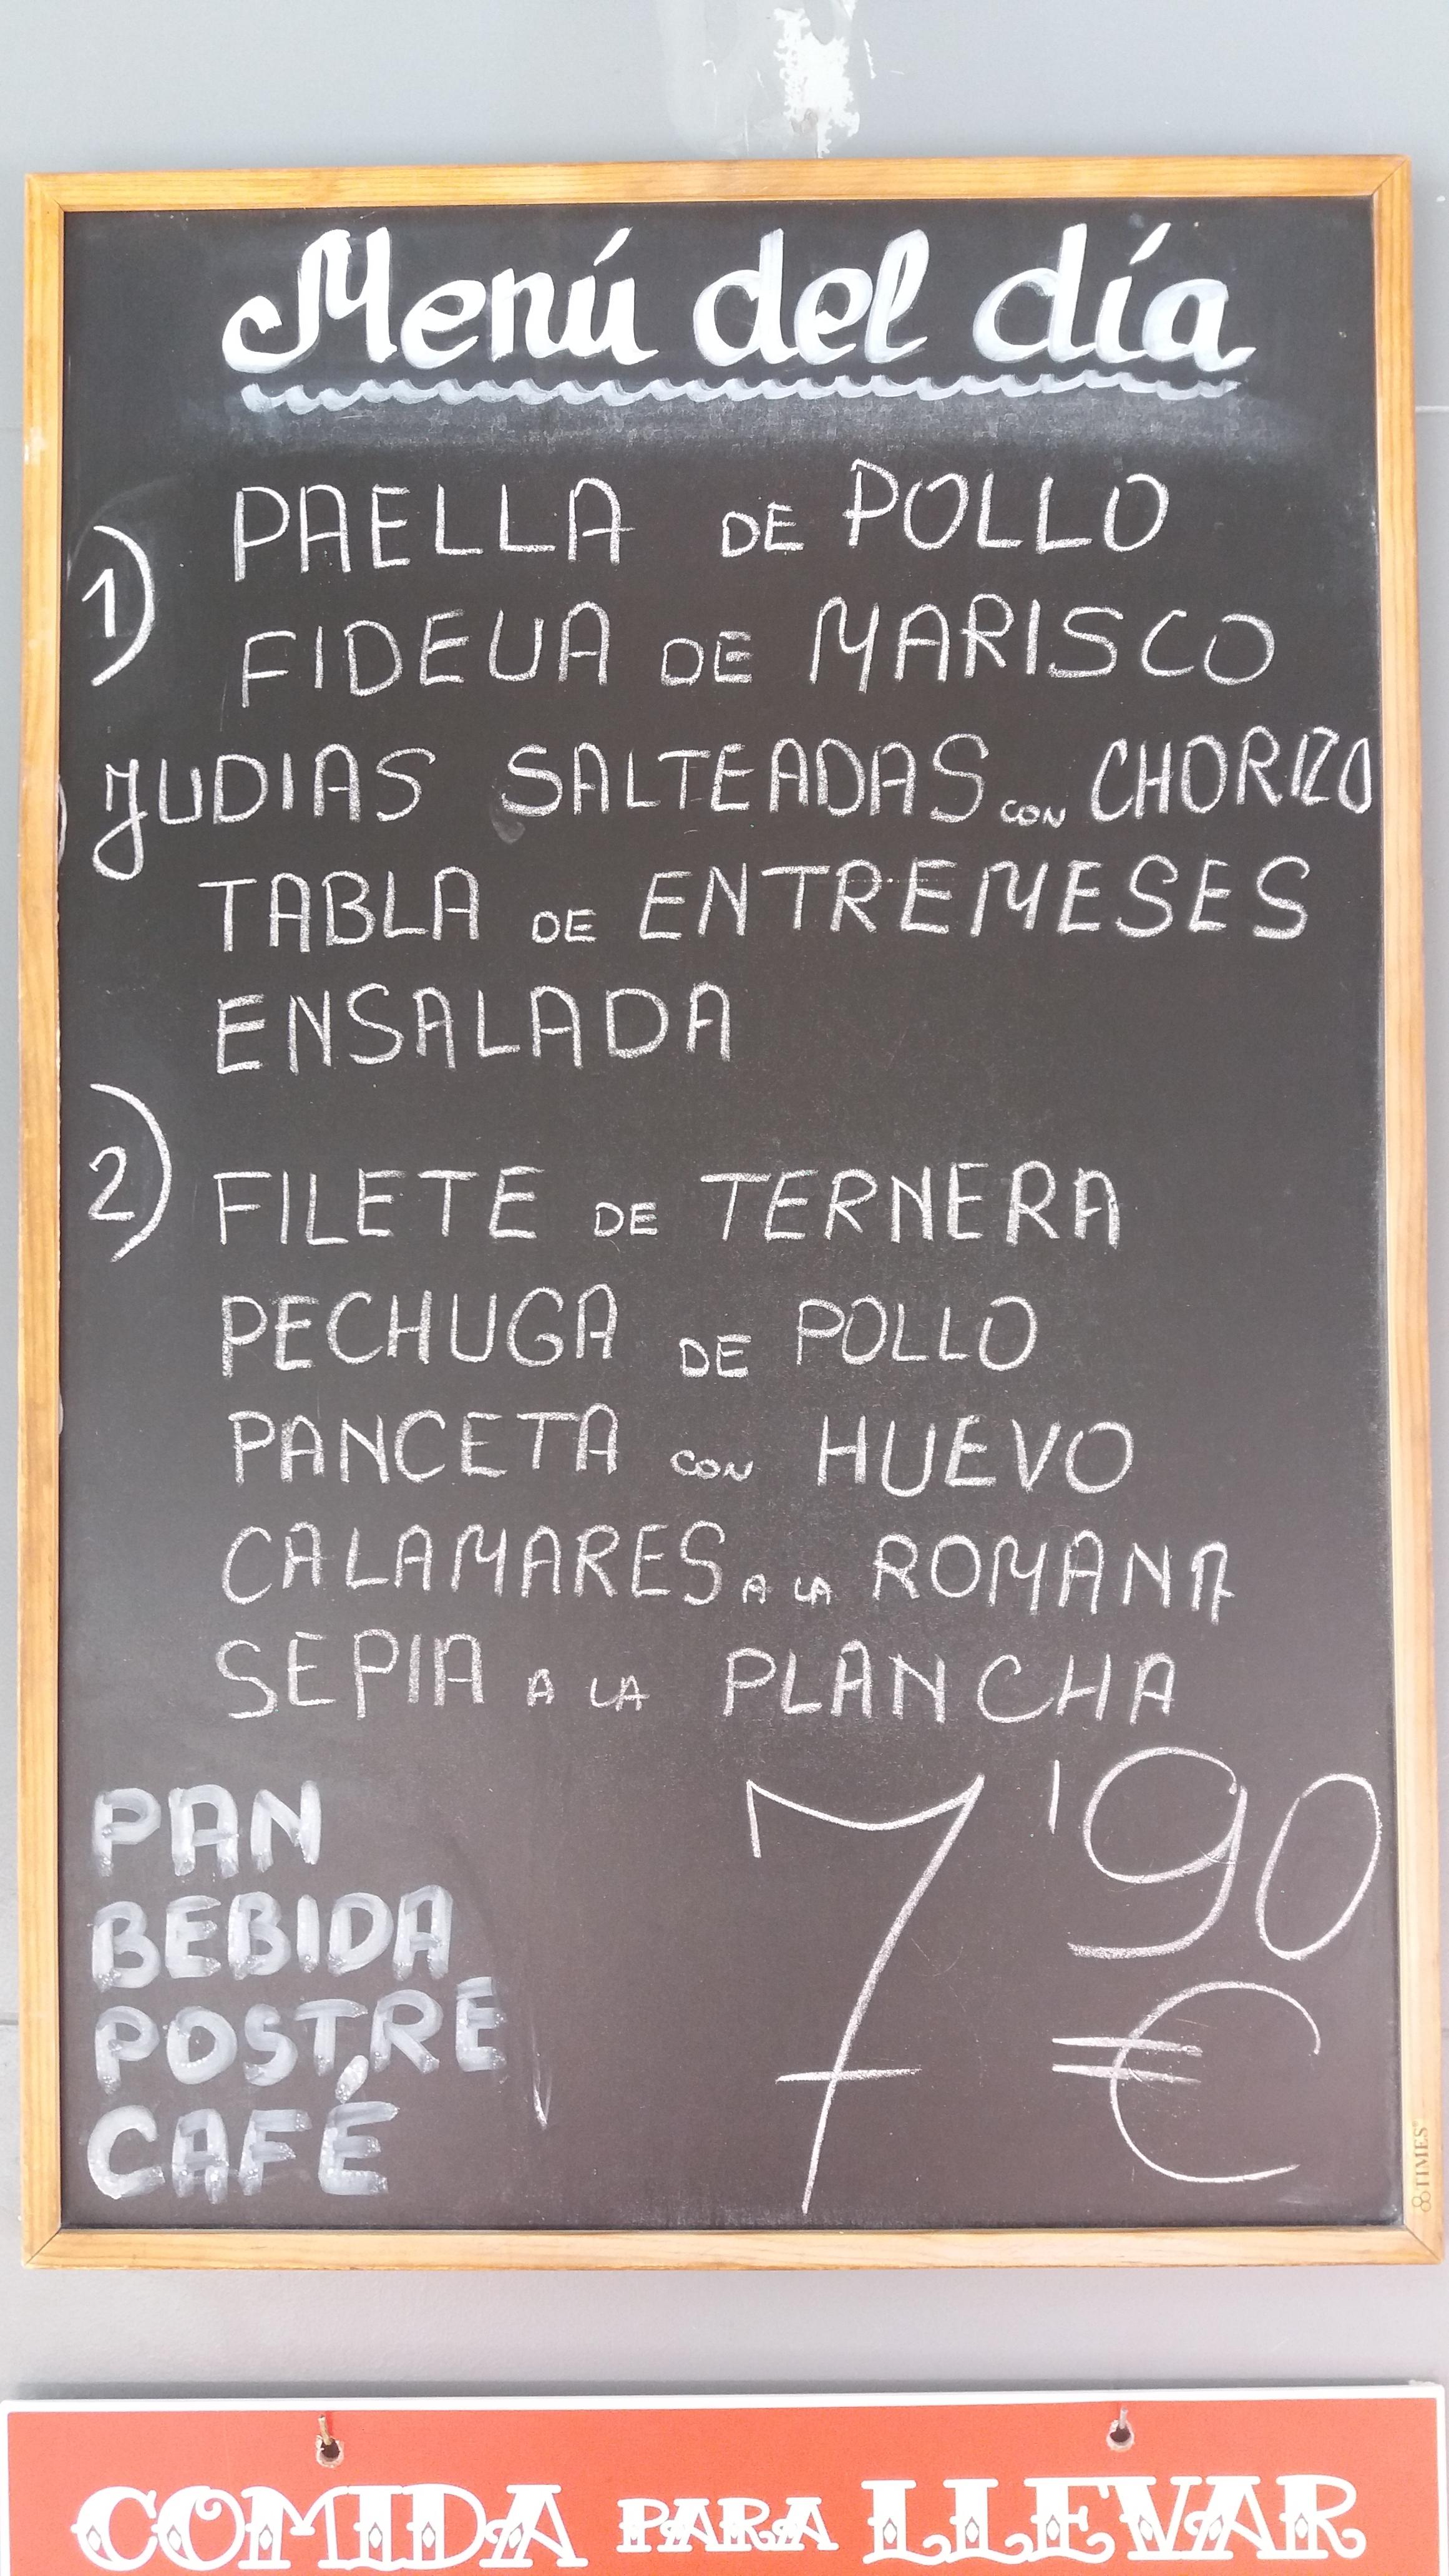 Menú del día
1) PAELLA DE POLLO
FIDEUA DE MARISCO
JUDIAS SALTEADAS CON CHORIZO
TABLA DE ENTREMESES
ENSALADA
2) FILETE DE TERNERA
PECHUGA DE POLLO
PANCETA CON HUEVO
CALAMARES A LA ROMANA
SEPIA A LA PLANCHA
PAN
BEBIDA
POSTRE
CAFÉ
7'90
€
TIMES
COMIDA PARA LLEVAR